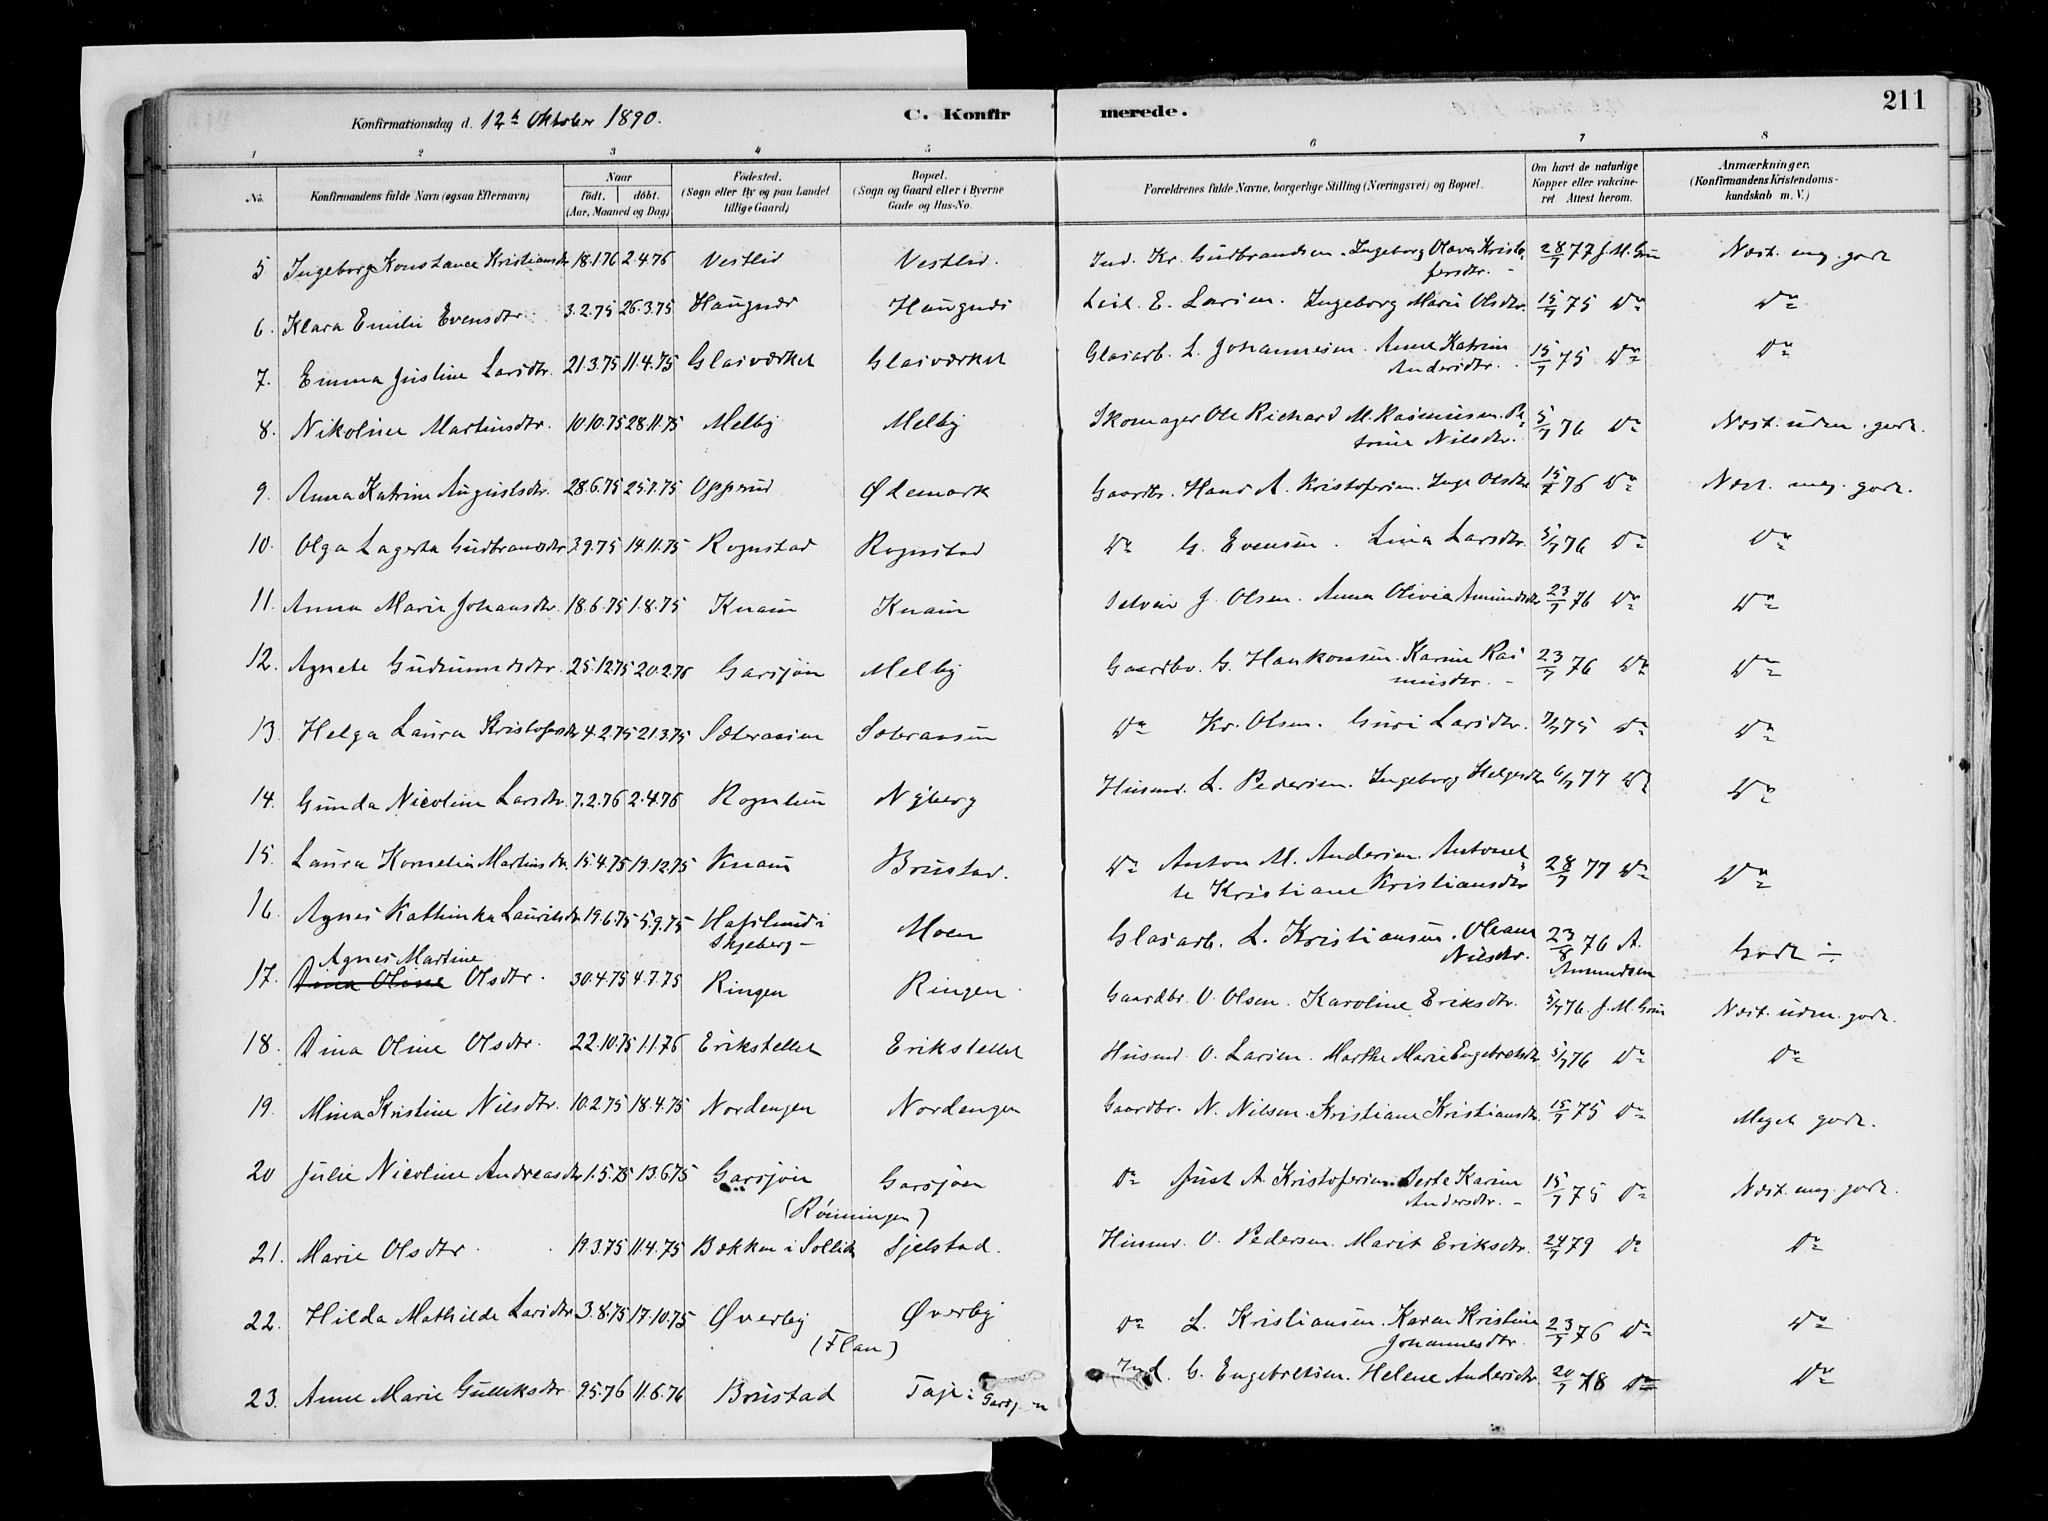 211
Konfirmationsdag d. 12te Oktober 1890. C. Konfirmerede.
1 2 3 4 5 6 7 8
No. Konfirmandens fulde Navn (ogsaa Efternavn) Naar født. døbt. (Aar, Maaned og Dag) Fødested. (Sogn eller By og paa Landet tillige Gaard) Bopæl. (Sogn og Gaard eller i Byerne Gade og Hus-No. Forældrenes fulde Navne, borgerlige Stilling (Næringsvei) og Bopæl. Om havt de naturlige Kopper eller vakcineret Attest herom. Anmærkninger. (Konfirmandens Kristendomskundskab m. V.)
5 Ingeborg Konstance Kristiansdtr 18.1.76 2.4.76 Vestlid Vestlid. Ind. Kr. Gudbrandsen. Ingeborg Olava Kristofersdtr. 28/7 77 J. M. Næst. meg. godt
6. Klara Emilie Evensdtr 3.2.75 26.3.75 Haugnæs Haugnæs E. Larsen. Ingeborg Marie Olsdtr. 15/7 75 Do Do
7. Emma Justine Larsdtr. 21.3.75 11.4.75 Glasværket Glasværket Glasarb. L. Johannesen. Anne Katrine Andersdtr. 15/7 75 Do Do
8. Nikoline Martinsdtr. 10.10.75 28.11.75 Melby Melby Skomager Ole Richard M. Rasmussen. Petrine Nilsdtr. 5/7 76 Do Næst. uden. godt.
9. Anna Katrine Augustsdtr. 28.6.75 25.7.75 Opperud Ølemark Gaardbr. Hans A. Kristofersen. Inge Olsdtr 15/7 76 Do Næst. meg. godt.
10. Olga Lagerta Gudbrandsdtr 3.9.75 14.11.75 Rognstad Rognstad Do G. Evensen. Lina Larsdtr. 5/7 76 Do Do
11. Anna Marie Johansdtr. 18.6.75 1.8.75 Knain Knain Selveier J. Olsen. Anna Olivia Amundsdtr 23/7 76 Do Do
12. Agnete Gudmundsdtr. 25.12.75 20.2.76 Garsjøen Melby Gaardbr. G. Haakonsen. Karine Rasmusdtr. 23/7 76 Do Do
13. Helga Laura Kristofersdtr 4.2.75 21.3.75 Sæteraasen Sæteraasen Do Kr. Olsen. Guri Larsdtr. 7/7 75 Do Do
14. Gunda Nicoline Larsdtr. 7.2.76 2.4.76 Rognlien Nyberg Husmd. L. Pedersen. Ingeborg Helgesdtr 6/7 77 Do Do
15. Laura Kornelia Martinsdtr. 15.4.75 19.12.75 Knain Brustad. Do Anton M. Andersen. Antonette Kristiane Kristiansdtr 28/7 77 Do Do
16. Agnes Kathinka Lauritsdtr. 19.6.75 5.9.75 Hafslund i Skjeberg Moen Glasarb. L. Kristiansen. Oleane Nilsdtr. 23/8 76 A. Amundsen Godt ÷
17. Agnes Martine Dina Oline Olsdtr. 30.4.75 4.7.75 Ringen Ringen Gaardbr. O. Olsen. Karoline Eriksdtr. 5/7 76. J. M. Næst. uden. godt.
18. Dina Oline Olsdtr. 22.10.75 1.1.76 Erikstellet Erikstellet Husmd. O. Larsen. Marthe Marie Engebretsdtr 5/7 76 Do Do
19. Mina Kristine Nilsdtr. 10.2.75 18.4.75 Nordengen Nordengen Gaardbr. N. Nilsen. Kristiane Kristiansdtr. 15/7 75 Do Meget godt.
20 Julie Nicoline Andreasdtr 1.5.75 13.6.75 Garsjøen Garsjøen Do Just A. Kristofersen. Berte Karine Andersdtr. 15/7 75 Do Næst. meg. godt.
21. Marie Olsdtr 19.3.75 11.4.75 (Rönningen) Bækken i Sollid Sjelstad. Husmd. O. Pedersen. Marit Eriksdtr. 24/7 79 Do Do
22. Hilda Mathilde Larsdtr 3.8.75 17.10.75 Øverby Øverby Do L. Kristiansen. Karen Kristine Johannesdtr. 23/7 76 Do Do
23. Anne Marie Gulliksdtr. 9.5.76 11.6.76 (Flan) Brustad Ind. G. Engebretsen. Helene Andersdtr. 20/7 78 Do Do